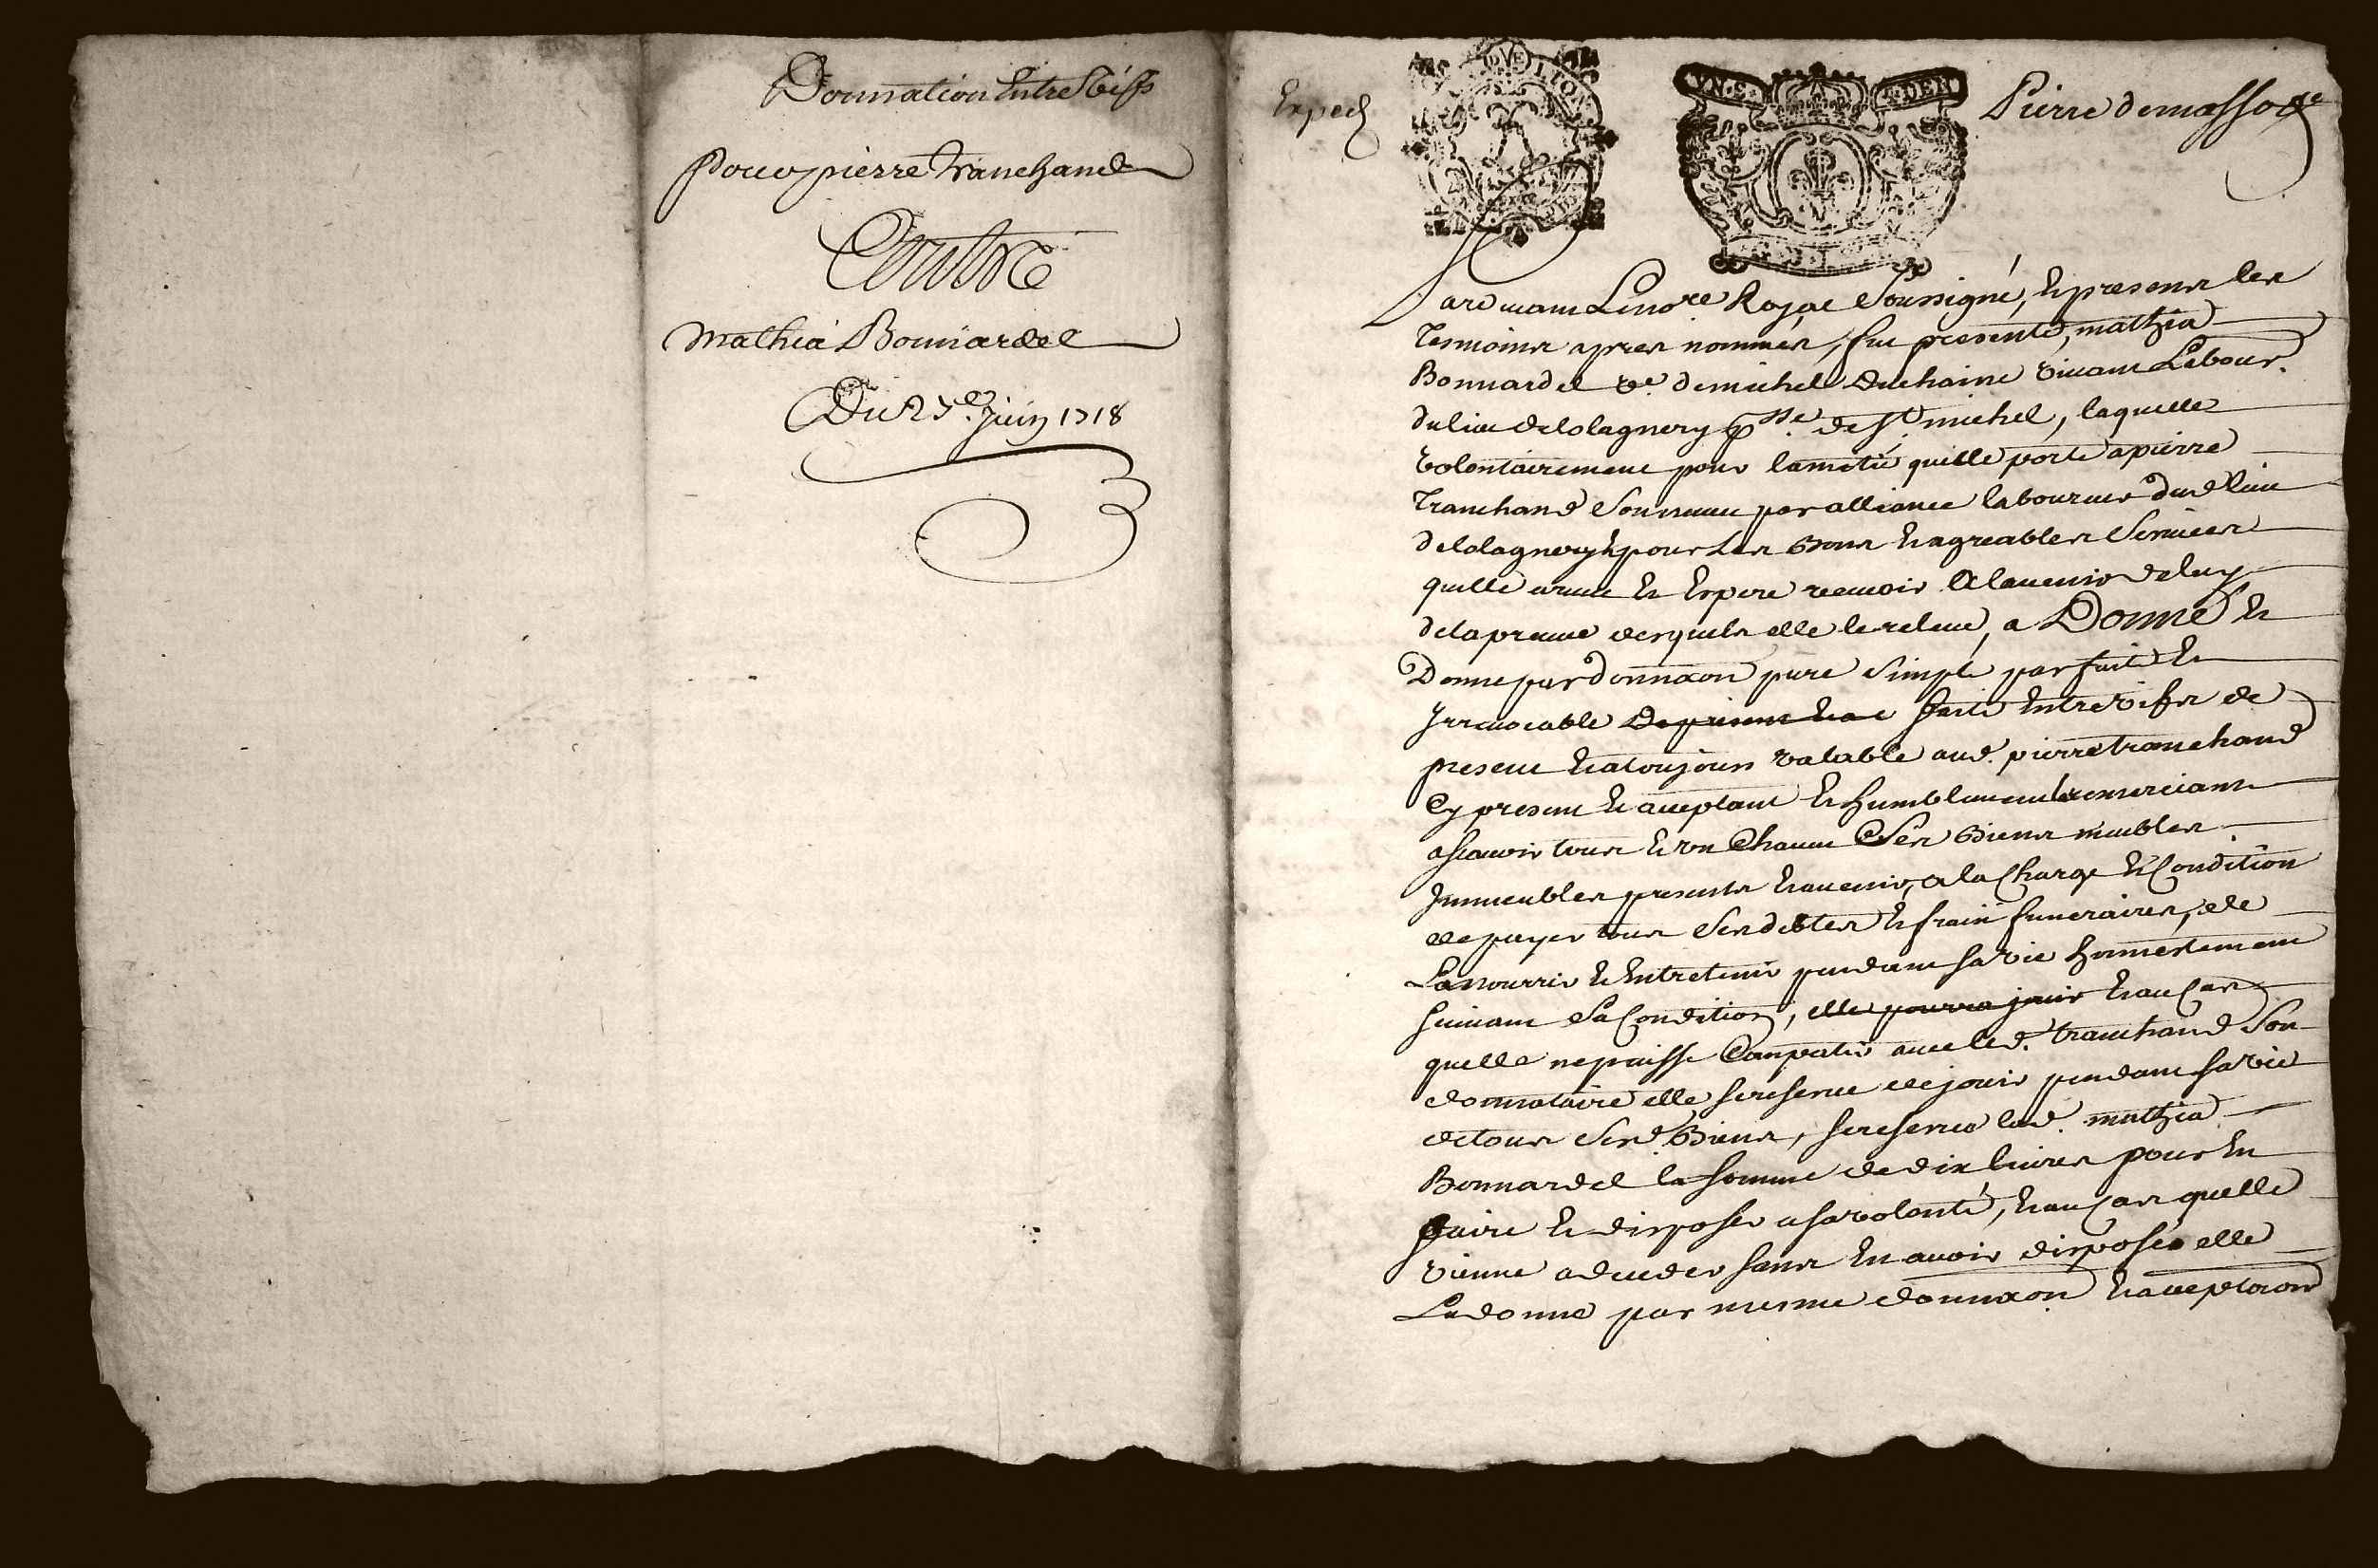 Donnation Entre Vifs
Pour pierre Tranchand
Contre
Mathia Bonnardel
Du 25e. Juin 1718
Exped
VN.S. DEN
Pierre demasso
Pardevant Le no.re Royal Soussigné, et presens les
Temoins apres nommés, fut presente, mathia
Bonnardel ve. de michel Duchaine vivant Labour.
du lieu de Lolagnery psse. de St. michel, laquelle
volontairement pour lamitié quelle porte a pierre
Tranchand Son neveu par alliance laboureur dud. lieu
de Lolagnery et pour Les Bons et agreables Services
quelle a reçu et Espere recevoir a lavenir de luy
de la preuve desquels elle le releve, a Donné et
Donne par donnaon pure Simple parfaite et
Irrevocable De present et a faite Entre vifs de
present et a toujours valable aud. pierre tranchand
Cy present et acceptant et humblement remerciant
ascavoir tous et un Chacun Ses Biens meubles
Immeubles presents et avenir, a la Charge et Condition
de payer tous Ses debtes et frais funeraires, de
La nourrir et Entretenir pendant sa vie honnestement
suivant Sa Condition, elle pourra jouir et au Cas
quelle ne puisse Compatir avec led. tranchand Son
donnataire elle se reserve de jouir pendant sa vie
de tous Sesd. Biens, se reserve lad. mathia
Bonnardel la somme de dix livres pour En
faire et disposer a sa volonté, et au Cas quelle
vienne a deceder sans En avoir disposé elle
La donne par mesme donnaon et acceptaon